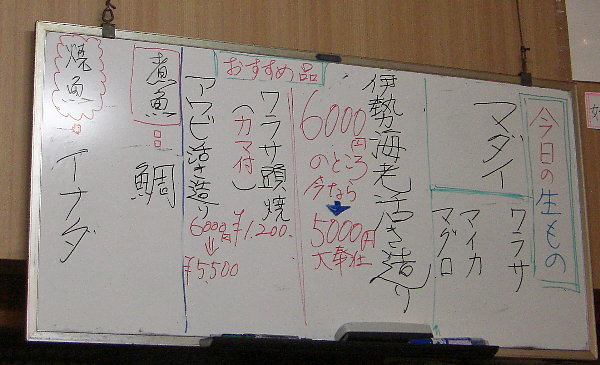 今日の生もの
マダイ
ワラサ
マイカ
マグロ
おすすめ品
伊勢海老活き造り
6000円
のところ
今なら
5000円
大奉仕
ワラサ頭焼
(カマ付)
¥1,200.
アワビ活き造り
6000円
¥5,500
煮魚
鯛
焼魚
イナダ